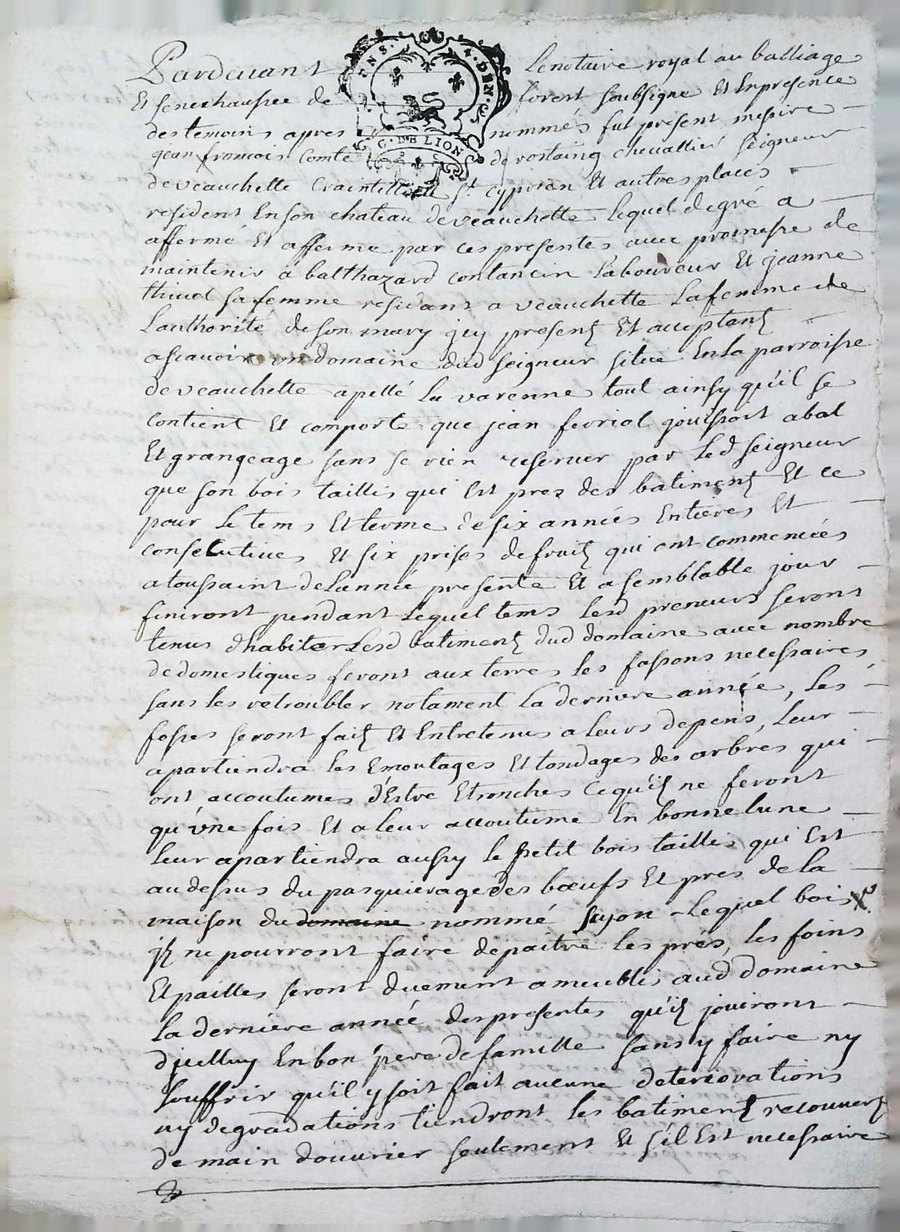 Pardevant Le notaire royal au balliage
Et senechaussee de forest soubsigné Et En presence
des temoins apres nommés fut present messire
jean francois comte de rostaing chevallier seigneur
de veauchette Craintillieu st cyprian Et autres places
resident En son chateau de veauchette Lequel de gré a
affermé Et afferme par ces presentes avec promesse de
maintenir a balthazard contancin Laboureur Et jeanne
thivel sa femme residant a veauchette La femme de
Lauthorité de son mary icy present Et acceptant
a scavoir un domaine dud seigneur situé En La parroisse
de veauchette apellé La varenne tout ainsy qu'il se
contient Et comporte que jean fevrial jouissoit a bal
Et grangeage sans se rien reserver par Led seigneur
que son bois taillis qui Est prez des batiments Et ce
pour Le tems Et terme de six années Entieres Et
consecutives Et six prises de fruits qui ont commencées
a toussaint de Lannee presente Et a semblable jour
finiront pendant Lequel tems Lesd preneurs seront
tenus d'habiter Lesd batiments dud domaine avec nombre
de domestiques feront aux terres les fassons necessaires
sans les retroubler notament La derniere année, Les
fosses seront faits Et Entretenus a Leurs depens, Leur
apartiendra les Emoutages Et tondages des arbres qui
ont accoutumes d'Estre Etronches ce qu'ils ne feront
qu'une fois Et a leur accoutume En bonne Lune
Leur apartiendra aussy le petit bois taillis qui Est
au dessus du pasquierage des bœufs Et pres de La
maison du domaine nommé Suyon Lequel bois
ils ne pourront faire depaitre les prés, les foins
Et pailles seront duement ameublis aud domaine
La derniere année des presentes qu'ils jouiront
d'jcelluy En bon pere de famille sans y faire ny
souffrir qu'il y soit fait aucune deteriorations
ny degradations tiendront les batiments recouverts
de main d'ouvrier seulement Et s'il Est necessaire
G. DE LION